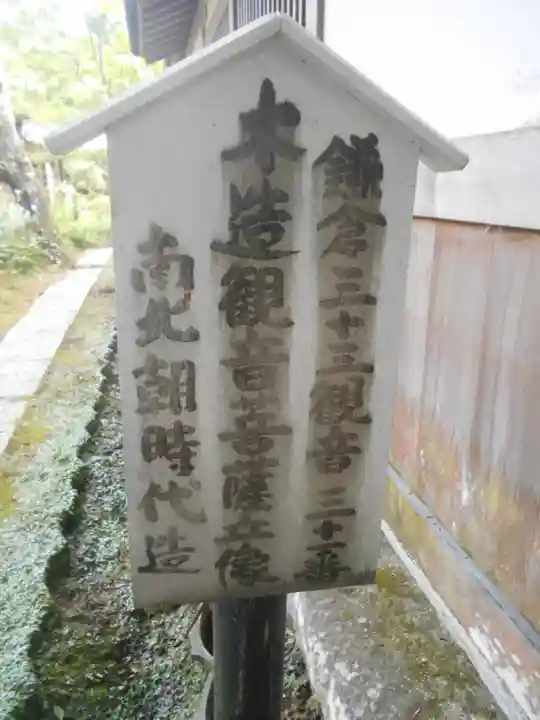 鎌倉三十三観音三十一番
木造観音菩薩立像
南北朝時代造